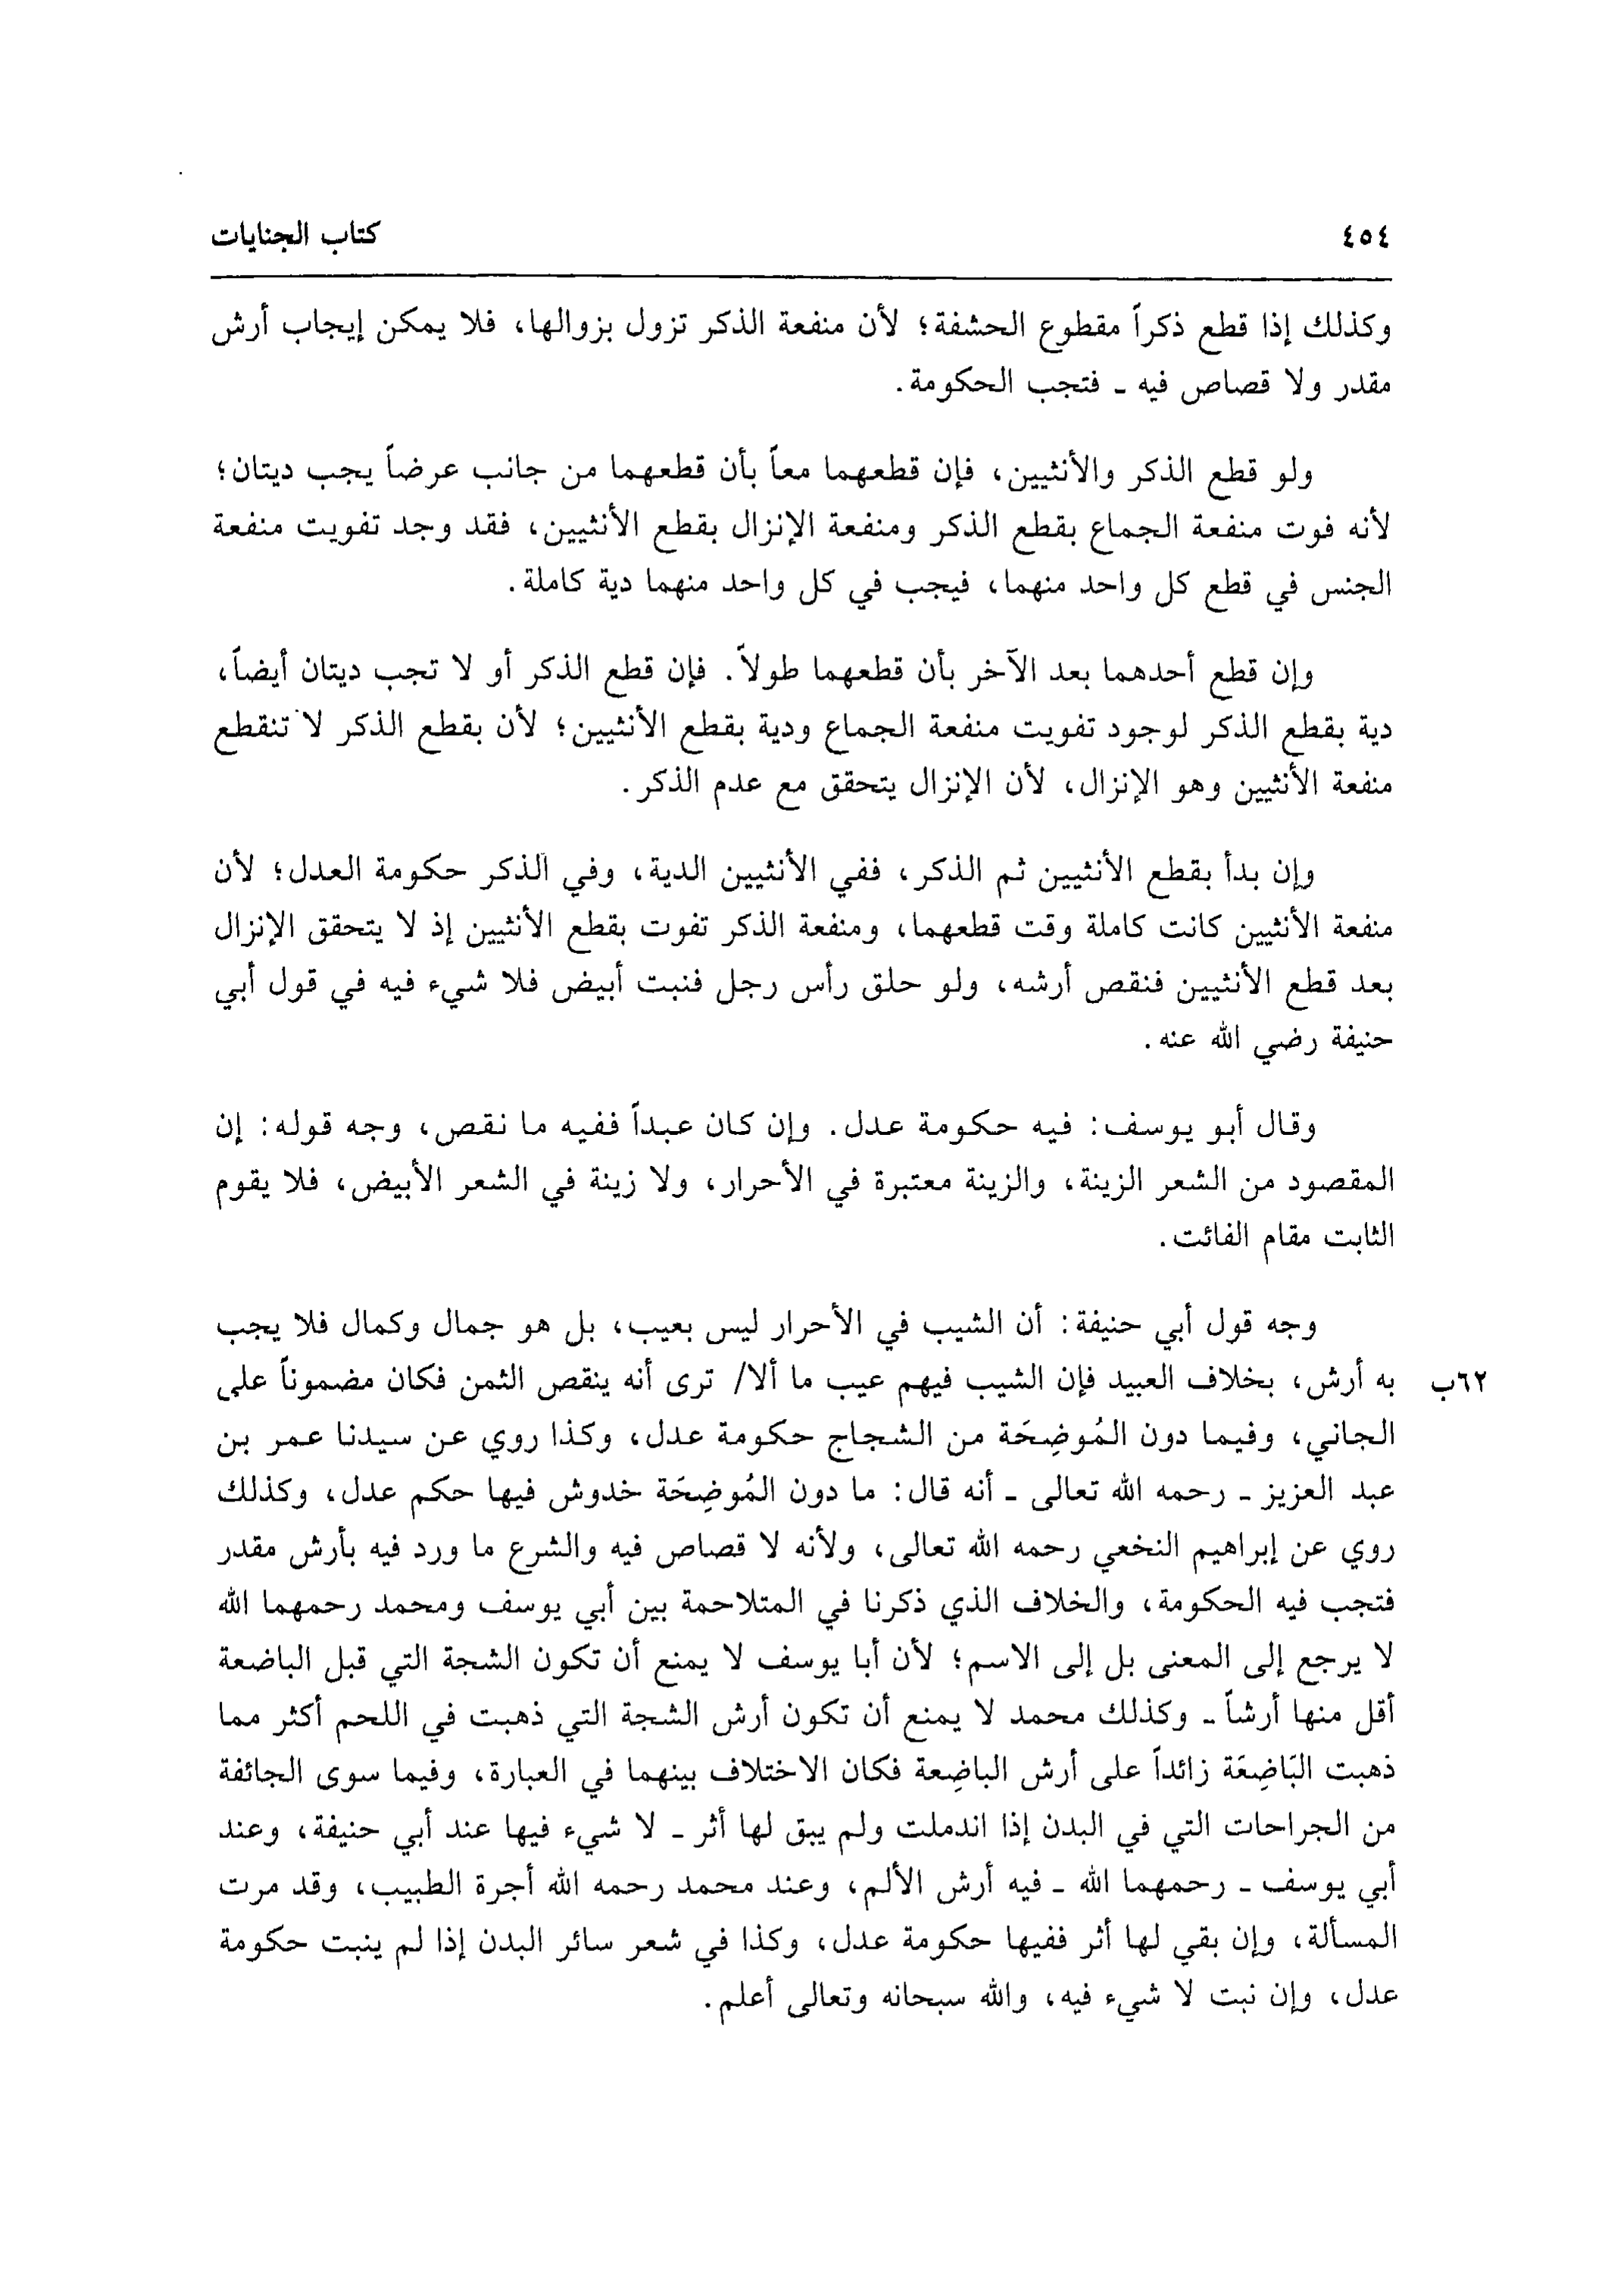 ٤٥٤ كتاب الجنايات
وكذلك إذا قطع ذكراً مقطوع الحشفة؛ لأن منفعة الذكر تزول بزوالها، فلا يمكن إيجاب أرش
مقدر ولا قصاص فيه ـ فتجب الحكومة.
ولو قطع الذكر والأنثيين، فإن قطعهما معاً بأن قطعهما من جانب عرضاً يجب ديتان؛
لأنه فوت منفعة الجماع بقطع الذكر ومنفعة الإنزال بقطع الأنثيين، فقد وجد تفويت منفعة
الجنس في قطع كل واحد منهما، فيجب في كل واحد منهما دية كاملة.
وإن قطع أحدهما بعد الآخر بأن قطعهما طولاً. فإن قطع الذكر أو لا تجب ديتان أيضاً،
دية بقطع الذكر لوجود تفويت منفعة الجماع ودية بقطع الأنثيين؛ لأن بقطع الذكر لا تنقطع
منفعة الأنثيين وهو الإنزال، لأن الإنزال يتحقق مع عدم الذكر.
وإن بدأ بقطع الأنثيين ثم الذكر، ففي الأنثيين الدية، وفي الذكر حكومة العدل؛ لأن
منفعة الأنثيين كانت كاملة وقت قطعهما، ومنفعة الذكر تفوت بقطع الأنثيين إذ لا يتحقق الإنزال
بعد قطع الأنثيين فنقص أرشه، ولو حلق رأس رجل فنبت أبيض فلا شيء فيه في قول أبي
حنيفة رضي الله عنه.
وقال أبو يوسف: فيه حكومة عدل. وإن كان عبداً ففيه ما نقص، وجه قوله: إن
المقصود من الشعر الزينة، والزينة معتبرة في الأحرار، ولا زينة في الشعر الأبيض، فلا يقوم
الثابت مقام الفائت.
وجه قول أبي حنيفة: أن الشيب في الأحرار ليس بعيب، بل هو جمال وكمال فلا يجب
٦٢ب به أرش، بخلاف العبيد فإن الشيب فيهم عيب ما ألا/ ترى أنه ينقص الثمن فكان مضموناً على
الجاني، وفيما دون المُوضِحَة من الشجاج حكومة عدل، وكذا روي عن سيدنا عمر بن
عبد العزيز ـ رحمه الله تعالى ـ أنه قال: ما دون المُوضِحَة خدوش فيها حكم عدل، وكذلك
روي عن إبراهيم النخعي رحمه الله تعالى، ولأنه لا قصاص فيه والشرع ما ورد فيه بأرش مقدر
فتجب فيه الحكومة، والخلاف الذي ذكرنا في المتلاحمة بين أبي يوسف ومحمد رحمهما الله
لا يرجع إلى المعنى بل إلى الاسم؛ لأن أبا يوسف لا يمنع أن تكون الشجة التي قبل الباضعة
أقل منها أرشاً ـ وكذلك محمد لا يمنع أن تكون أرش الشجة التي ذهبت في اللحم أكثر مما
ذهبت البَاضِعَة زائداً على أرش الباضِعة فكان الاختلاف بينهما في العبارة، وفيما سوى الجائفة
من الجراحات التي في البدن إذا اندملت ولم يبق لها أثر ـ لا شيء فيها عند أبي حنيفة، وعند
أبي يوسف ـ رحمهما الله ـ فيه أرش الألم، وعند محمد رحمه الله أجرة الطبيب، وقد مرت
المسألة، وإن بقي لها أثر ففيها حكومة عدل، وكذا في شعر سائر البدن إذا لم ينبت حكومة
عدل، وإن نبت لا شيء فيه، والله سبحانه وتعالى أعلم.